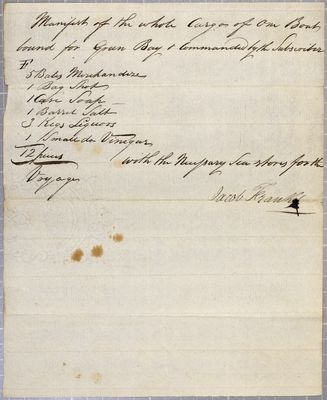 Manifest of the whole Cargo of One Boat
bound for Green Bay & Commanded by the Subscriber
5 Bales Merchandize
1 Bag Shot
1 Case Soap
1 Barrel Salt
3 Kegs Liquors
1 Small do Vinegar
12 pieces with the Necessary Sea stores for the
Voyage
Jacob Franks